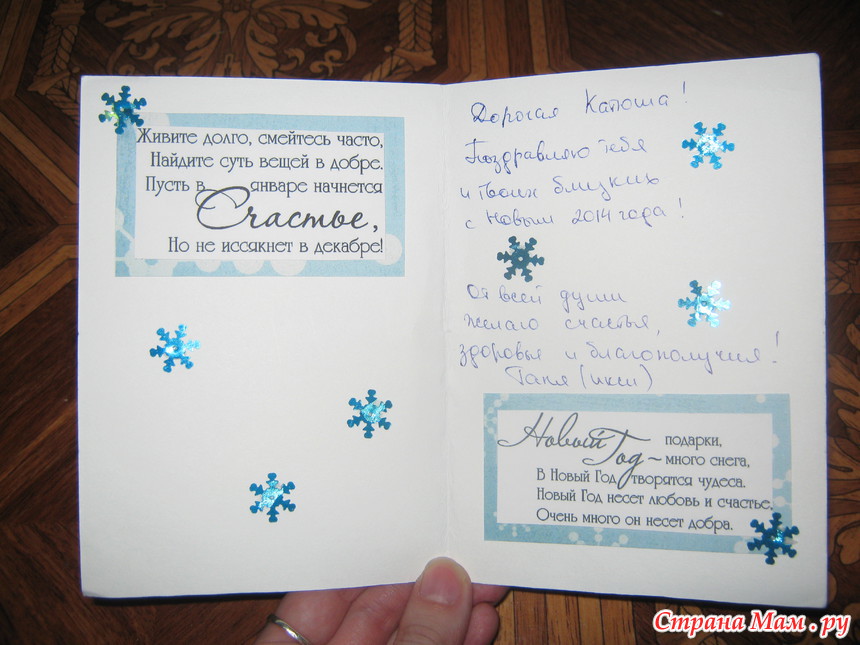 Живите долго, смейтесь часто,
Найдите суть вещей в добре.
Пусть в январе начнется
Счастье,
Но не иссякнет в декабре!
Дорогая Катюша!
Поздравляю тебя
и твоих близких
с Новым 2014 годом!
От всей души
желаю счастья,
здоровья и благополучия!
Таня (икси)
Новый Год – подарки,
много снега,
В Новый Год творятся чудеса.
Новый Год несет любовь и счастье,
Очень много он несет добра.
Страна Мам.ру